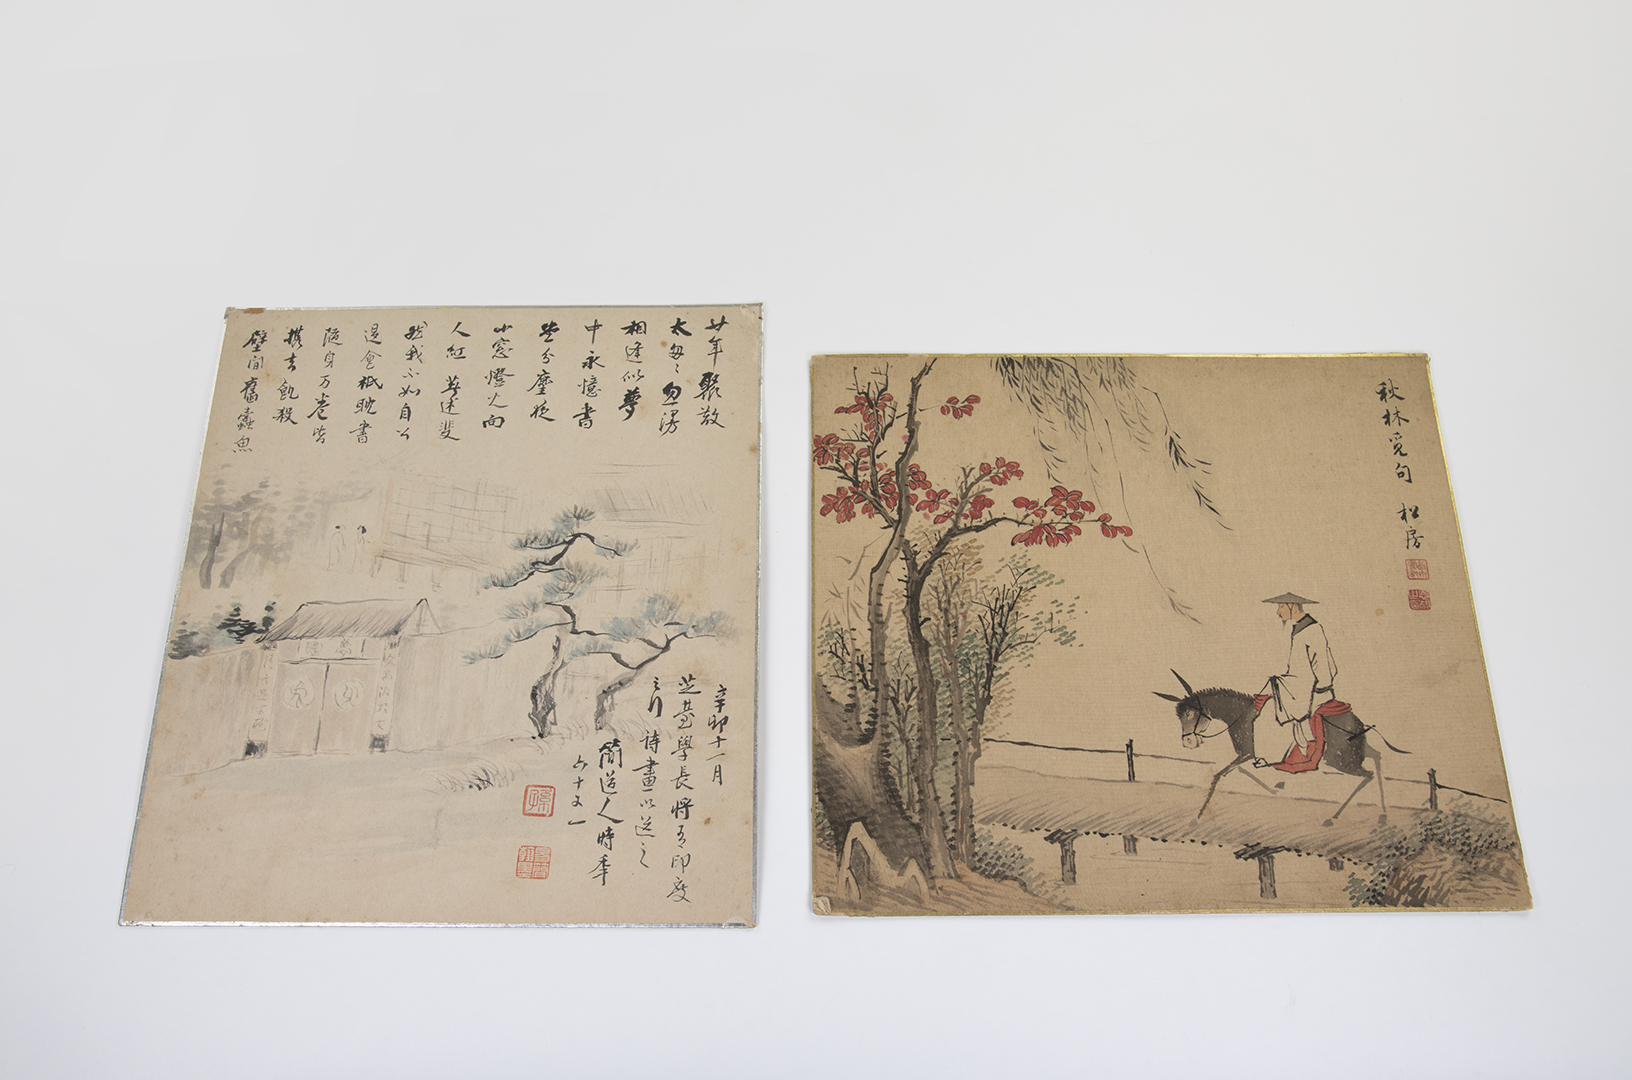 廿年聚散
太匆〻勿漫
相逢似夢
中永憶書
堂分廛夜
小窓燈火向
人紅 其述斐
然我不如自公
退食祇耽書
隨身万卷皆
攜去飢殺
壁間舊蠹魚
辛卯十一月
芝臺學長將有印度
之行 詩畫以送之
簡道人時年
六十又一
孫
秋林覓句 松房